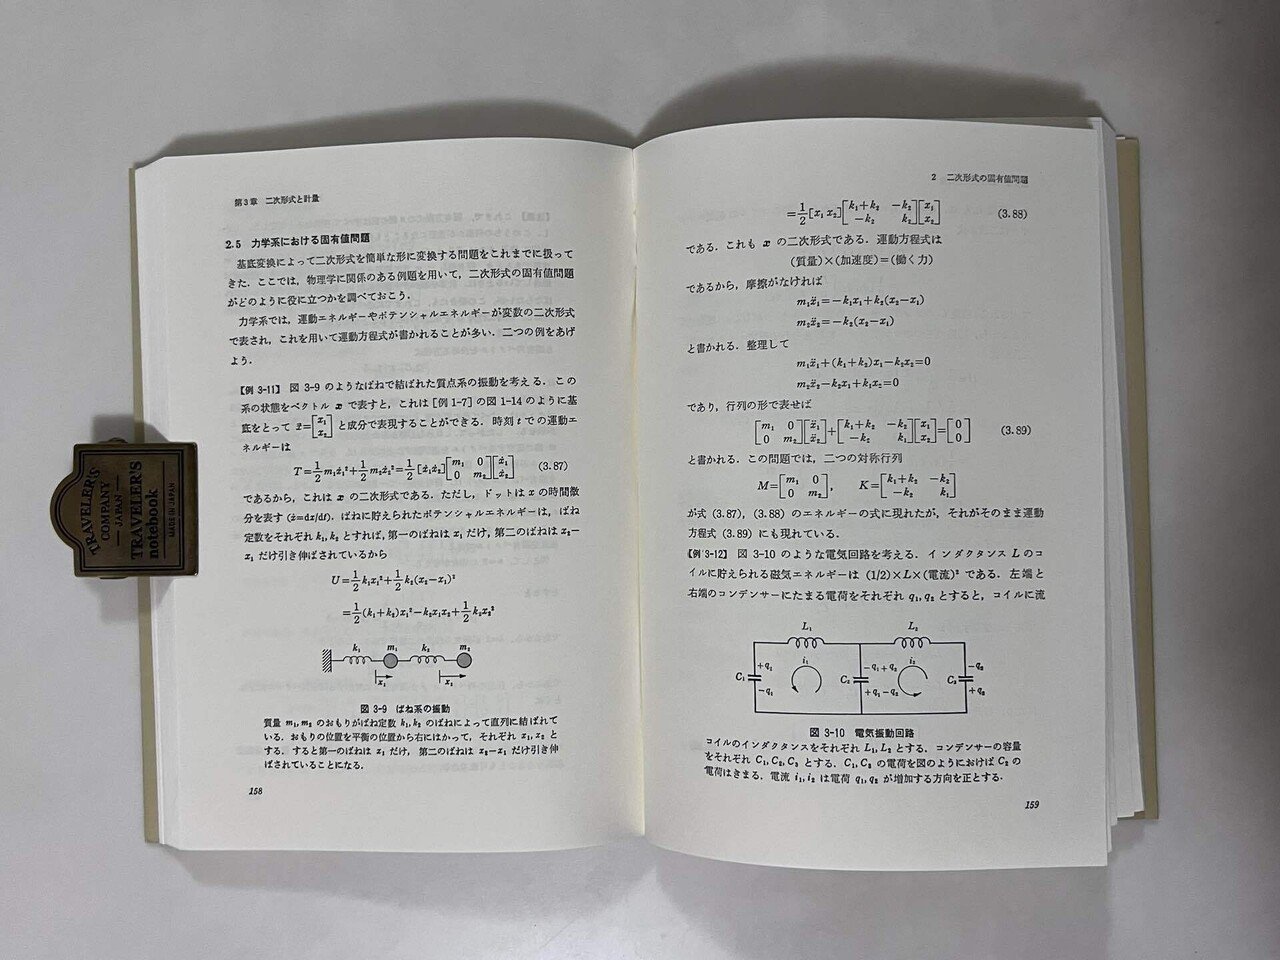 TRAVELER'S
COMPANY
JAPAN
TRAVELER'S
notebook
MADE IN JAPAN
第3章 二次形式と計量
2.5 力学系における固有値問題
基底変換によって二次形式を簡単な形に変換する問題をこれまでに扱って
きた．ここでは，物理学に関係のある例題を用いて，二次形式の固有値問題
がどのように役に立つかを調べておこう．
力学系では，運動エネルギーやポテンシャルエネルギーが変数の二次形式
で表され，これを用いて運動方程式が書かれることが多い．二つの例をあげ
よう．
【例 3-11】 図 3-9 のようなばねで結ばれた質点系の振動を考える．この
系の状態をベクトル x で表すと，これは［例 1-7］の図 1-14 のように基
底をとって x=[x₁ x₂] と成分で表現することができる．時刻 t での運動エ
ネルギーは
T=1/2 m₁ẋ₁²+1/2 m₂ẋ₂²=1/2 [ẋ₁ẋ₂][m₁ 0 0 m₂][ẋ₁ ẋ₂] (3.87)
であるから，これは x の二次形式である．ただし，ドットは x の時間微
分を表す (ẋ=dx/dt)．ばねに貯えられたポテンシャルエネルギーは，ばね
定数をそれぞれ k₁, k₂ とすれば，第一のばねは x₁ だけ，第二のばねは x₂−
x₁ だけ引き伸ばされているから
U=1/2 k₁x₁²+1/2 k₂(x₂−x₁)²
=1/2 (k₁+k₂)x₁²−k₂x₁x₂+1/2 k₂x₂²
k₁ m₁ k₂ m₂
x₁ x₂
図 3-9 ばね系の振動
質量 m₁, m₂ のおもりがばね定数 k₁, k₂ のばねによって直列に結ばれて
いる．おもりの位置を平衡の位置から右にはかって，それぞれ x₁, x₂ と
する．すると第一のばねは x₁ だけ，第二のばねは x₂−x₁ だけ引き伸
ばされていることになる．
158
2 二次形式の固有値問題
=1/2 [x₁ x₂][k₁+k₂ −k₂ −k₂ k₂][x₁ x₂] (3.88)
である．これも x の二次形式である．運動方程式は
(質量)×(加速度)=(働く力)
であるから，摩擦がなければ
m₁ẍ₁=−k₁x₁+k₂(x₂−x₁)
m₂ẍ₂=−k₂(x₂−x₁)
と書かれる．整理して
m₁ẍ₁+(k₁+k₂)x₁−k₂x₂=0
m₂ẍ₂−k₂x₁+k₂x₂=0
であり，行列の形で表せば
[m₁ 0 0 m₂][ẍ₁ ẍ₂]+[k₁+k₂ −k₂ −k₂ k₂][x₁ x₂]=[0 0] (3.89)
と書かれる．この問題では，二つの対称行列
M=[m₁ 0 0 m₂], K=[k₁+k₂ −k₂ −k₂ k₂]
が式 (3.87), (3.88) のエネルギーの式に現れたが，それがそのまま運動
方程式 (3.89) にも現れている．
【例 3-12】 図 3-10 のような電気回路を考える．インダクタンス L のコ
イルに貯えられる磁気エネルギーは (1/2)×L×(電流)² である．左端と
右端のコンデンサーにたまる電荷をそれぞれ q₁, q₂ とすると，コイルに流
L₁ L₂
+q₁ i₁ −q₁+q₂ i₂ −q₂
C₁ C₂ C₃
−q₁ +q₁−q₂ +q₂
図 3-10 電気振動回路
コイルのインダクタンスをそれぞれ L₁, L₂ とする．コンデンサーの容量
をそれぞれ C₁, C₂, C₃ とする．C₁, C₃ の電荷を図のようにおけば C₂ の
電荷はきまる．電流 i₁, i₂ は電荷 q₁, q₂ が増加する方向を正とする．
159